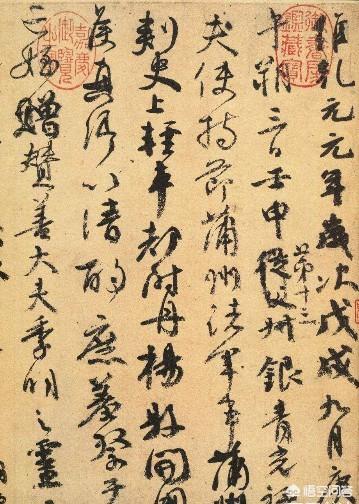 維乾元元年歲次戊戌九月庚
午朔三日壬申第十三從父叔銀青光祿
夫使持節蒲州諸軍事蒲州
刺史上輕車都尉丹楊縣開國
侯真卿以清酌庶羞祭于
亡姪贈贊善大夫季明之靈
嘉慶御覽之寶
悟空问答